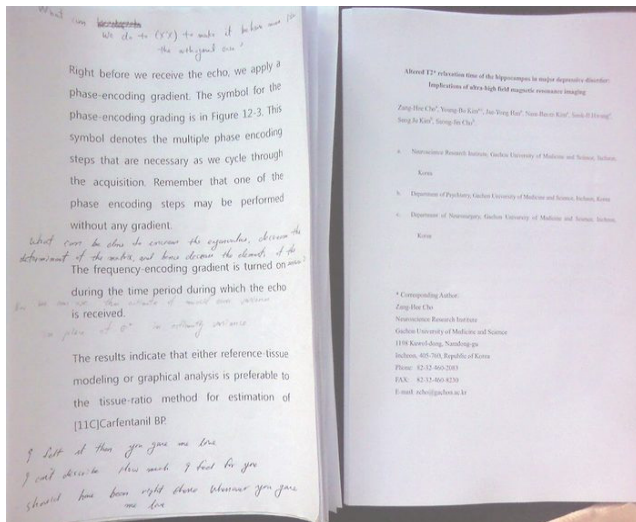 We do to (X'X) to make it
Right before we receive the echo, we apply a
phase-encoding gradient. The symbol for the
phase-encoding grading is in Figure 12-3. This
symbol denotes the multiple phase encoding
steps that are necessary as we cycle through
the acquisition. Remember that one of the
phase encoding steps may be performed
without any gradient.
What can be done to increase the eigenvalues, decrease the
determinant of the matrix, and hence decrease the elements of the
The frequency-encoding gradient is turned on
during the time period during which the echo
is received.
in place of
The results indicate that either reference-tissue
modeling or graphical analysis is preferable to
the tissue-ratio method for estimation of
[11C]Carfentanil BP.
I felt it then you gave me love
I can't describe how much I feel for you
should have been right there whenever you gave
me love
Altered T2* relaxation time of the hippocampus in major depressive disorder:
Implications of ultra-high field magnetic resonance imaging
Zang-Hee Cho
a. Neuroscience Research Institute, Gachon University of Medicine and Science, Incheon,
Korea
b. Department of Psychiatry, Gachon University of Medicine and Science, Incheon, Korea
c. Department of Neurosurgery, Gachon University of Medicine and Science, Incheon,
Korea
* Corresponding Author:
Zang-Hee Cho
Neuroscience Research Institute
Gachon University of Medicine and Science
1198 Kuwol-dong, Namdong-gu
Incheon, 405-760, Republic of Korea
Phone: 82-32-460-2083
FAX: 82-32-460-8230
E-mail: